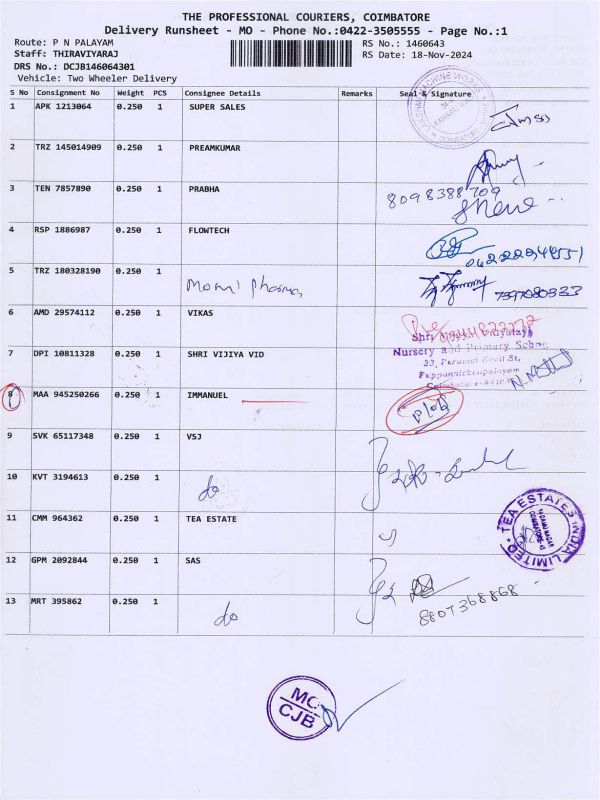 THE PROFESSIONAL COURIERS, COIMBATORE
Delivery Runsheet - MO - Phone No.:0422-3505555 - Page No.:1
Route: P N PALAYAM
RS No.: 1460643
Staff: THIRAVIYARAJ
RS Date: 18-Nov-2024
DRS No.: DCJB146064301
Vehicle: Two Wheeler Delivery
S No Consignment No Weight PCS Consignee Details Remarks Seal & Signature
1 APK 1213064 0.250 1 SUPER SALES
2 TRZ 145014909 0.250 1 PREAMKUMAR
3 TEN 7857890 0.250 1 PRABHA 8098388709
4 RSP 1886987 0.250 1 FLOWTECH
5 TRZ 180328190 0.250 1 Momi pharma
6 AMD 29574112 0.250 1 VIKAS
7 DPI 10811328 0.250 1 SHRI VIJIYA VID
Nursery and Primary School
23, Perumal Kovil St,
8 MAA 945250266 0.250 1 IMMANUEL
9 SVK 65117348 0.250 1 VSJ
10 KVT 3194613 0.250 1 do
11 CMM 964362 0.250 1 TEA ESTATE
TEA ESTATES INDIA LIMITED
12 GPM 2092844 0.250 1 SAS
13 MRT 395862 0.250 1 do
MO
CJB